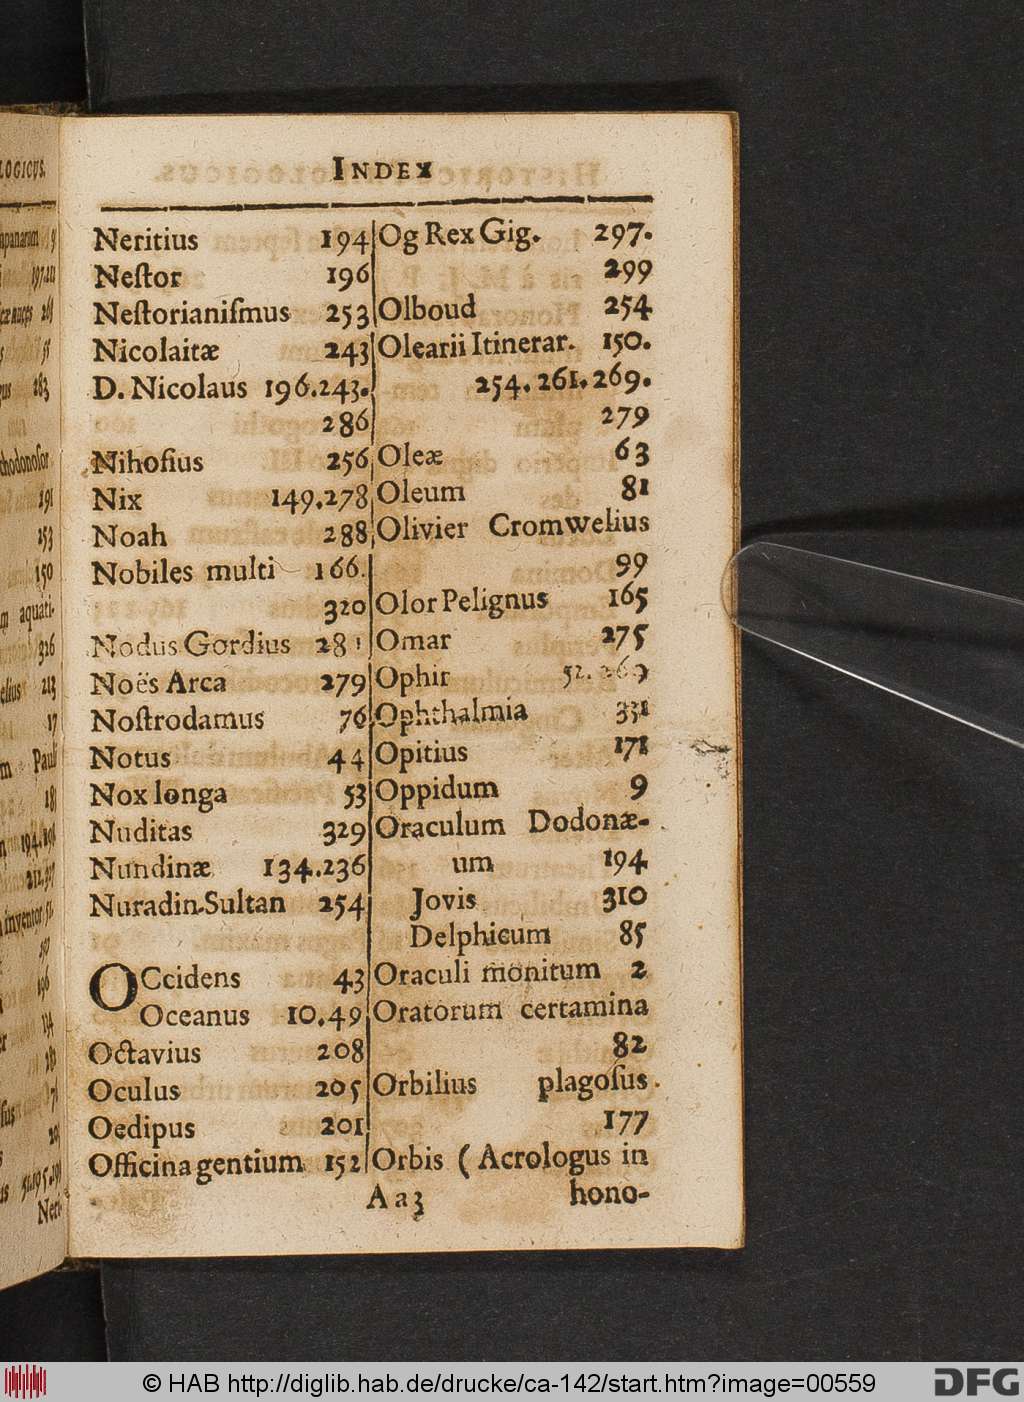 INDEX
Neritius 194
Neſtor 196
Neſtorianiſmus 253
Nicolaitæ 243
D. Nicolaus 196.243.
286
Nihoſius 256
Nix 149.278
Noah 288
Nobiles multi 166.
320
Nodus Gordius 281
Noës Arca 279
Noſtrodamus 76
Notus 44
Nox longa 53
Nuditas 329
Nundinæ 134.236
Nuradin-Sultan 254
OCcidens 43
Oceanus 10.49
Octavius 208
Oculus 205
Oedipus 201
Officina gentium 152
Og Rex Gig. 297.
299
Olboud 254
Olearii Itinerar. 150.
254. 261. 269.
279
Oleæ 63
Oleum 81
Olivier Cromwelius
99
Olor Pelignus 165
Omar 275
Ophir 52. 269
Ophthalmia 331
Opitius 171
Oppidum 9
Oraculum Dodonæ-
um 194
Jovis 310
Delphicum 85
Oraculi monitum 2
Oratorum certamina
82
Orbilius plagoſus.
177
Orbis (Acrologus in
Aa3 hono-
LOGICUS.
9
191
253
150
aquati-
326
213
17
Pauli
Neri-
© HAB http://diglib.hab.de/drucke/ca-142/start.htm?image=00559
DFG